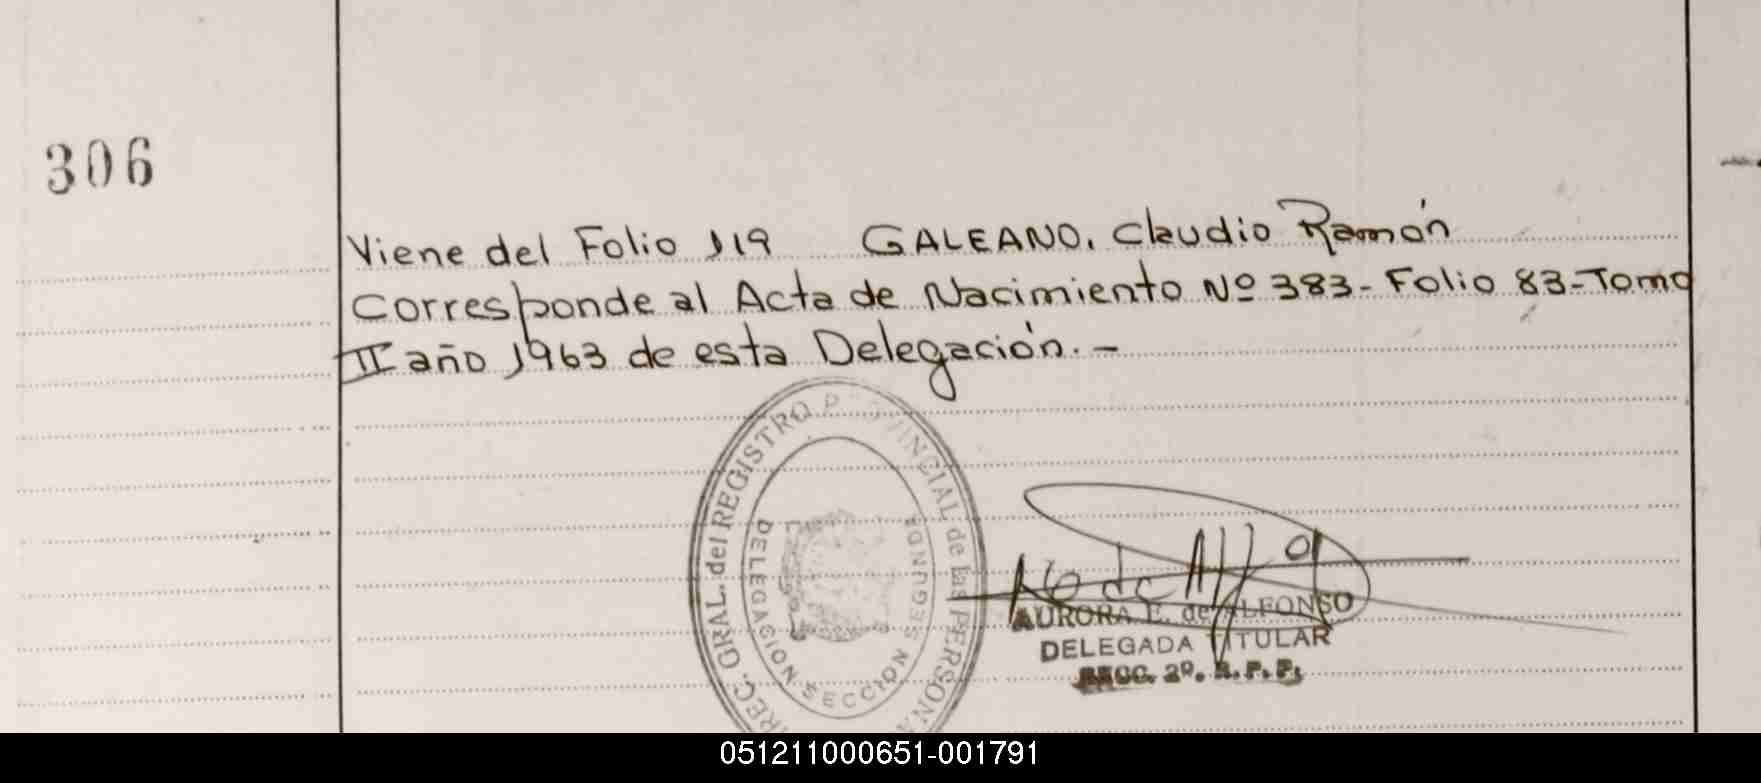 306
Viene del Folio 119 GALEANO, Claudio Ramón
Corresponde al Acta de Nacimiento Nº 383 - Folio 83 - Tomo
II año 1963 de esta Delegación. -
REC. GRAL. del REGISTRO PROVINCIAL de las PERSONA
DELEGACION SECCION SEGUNDA
AURORA E. de ALFONSO
DELEGADA TITULAR
SECC. 2º. R.P.P.
051211000651-001791